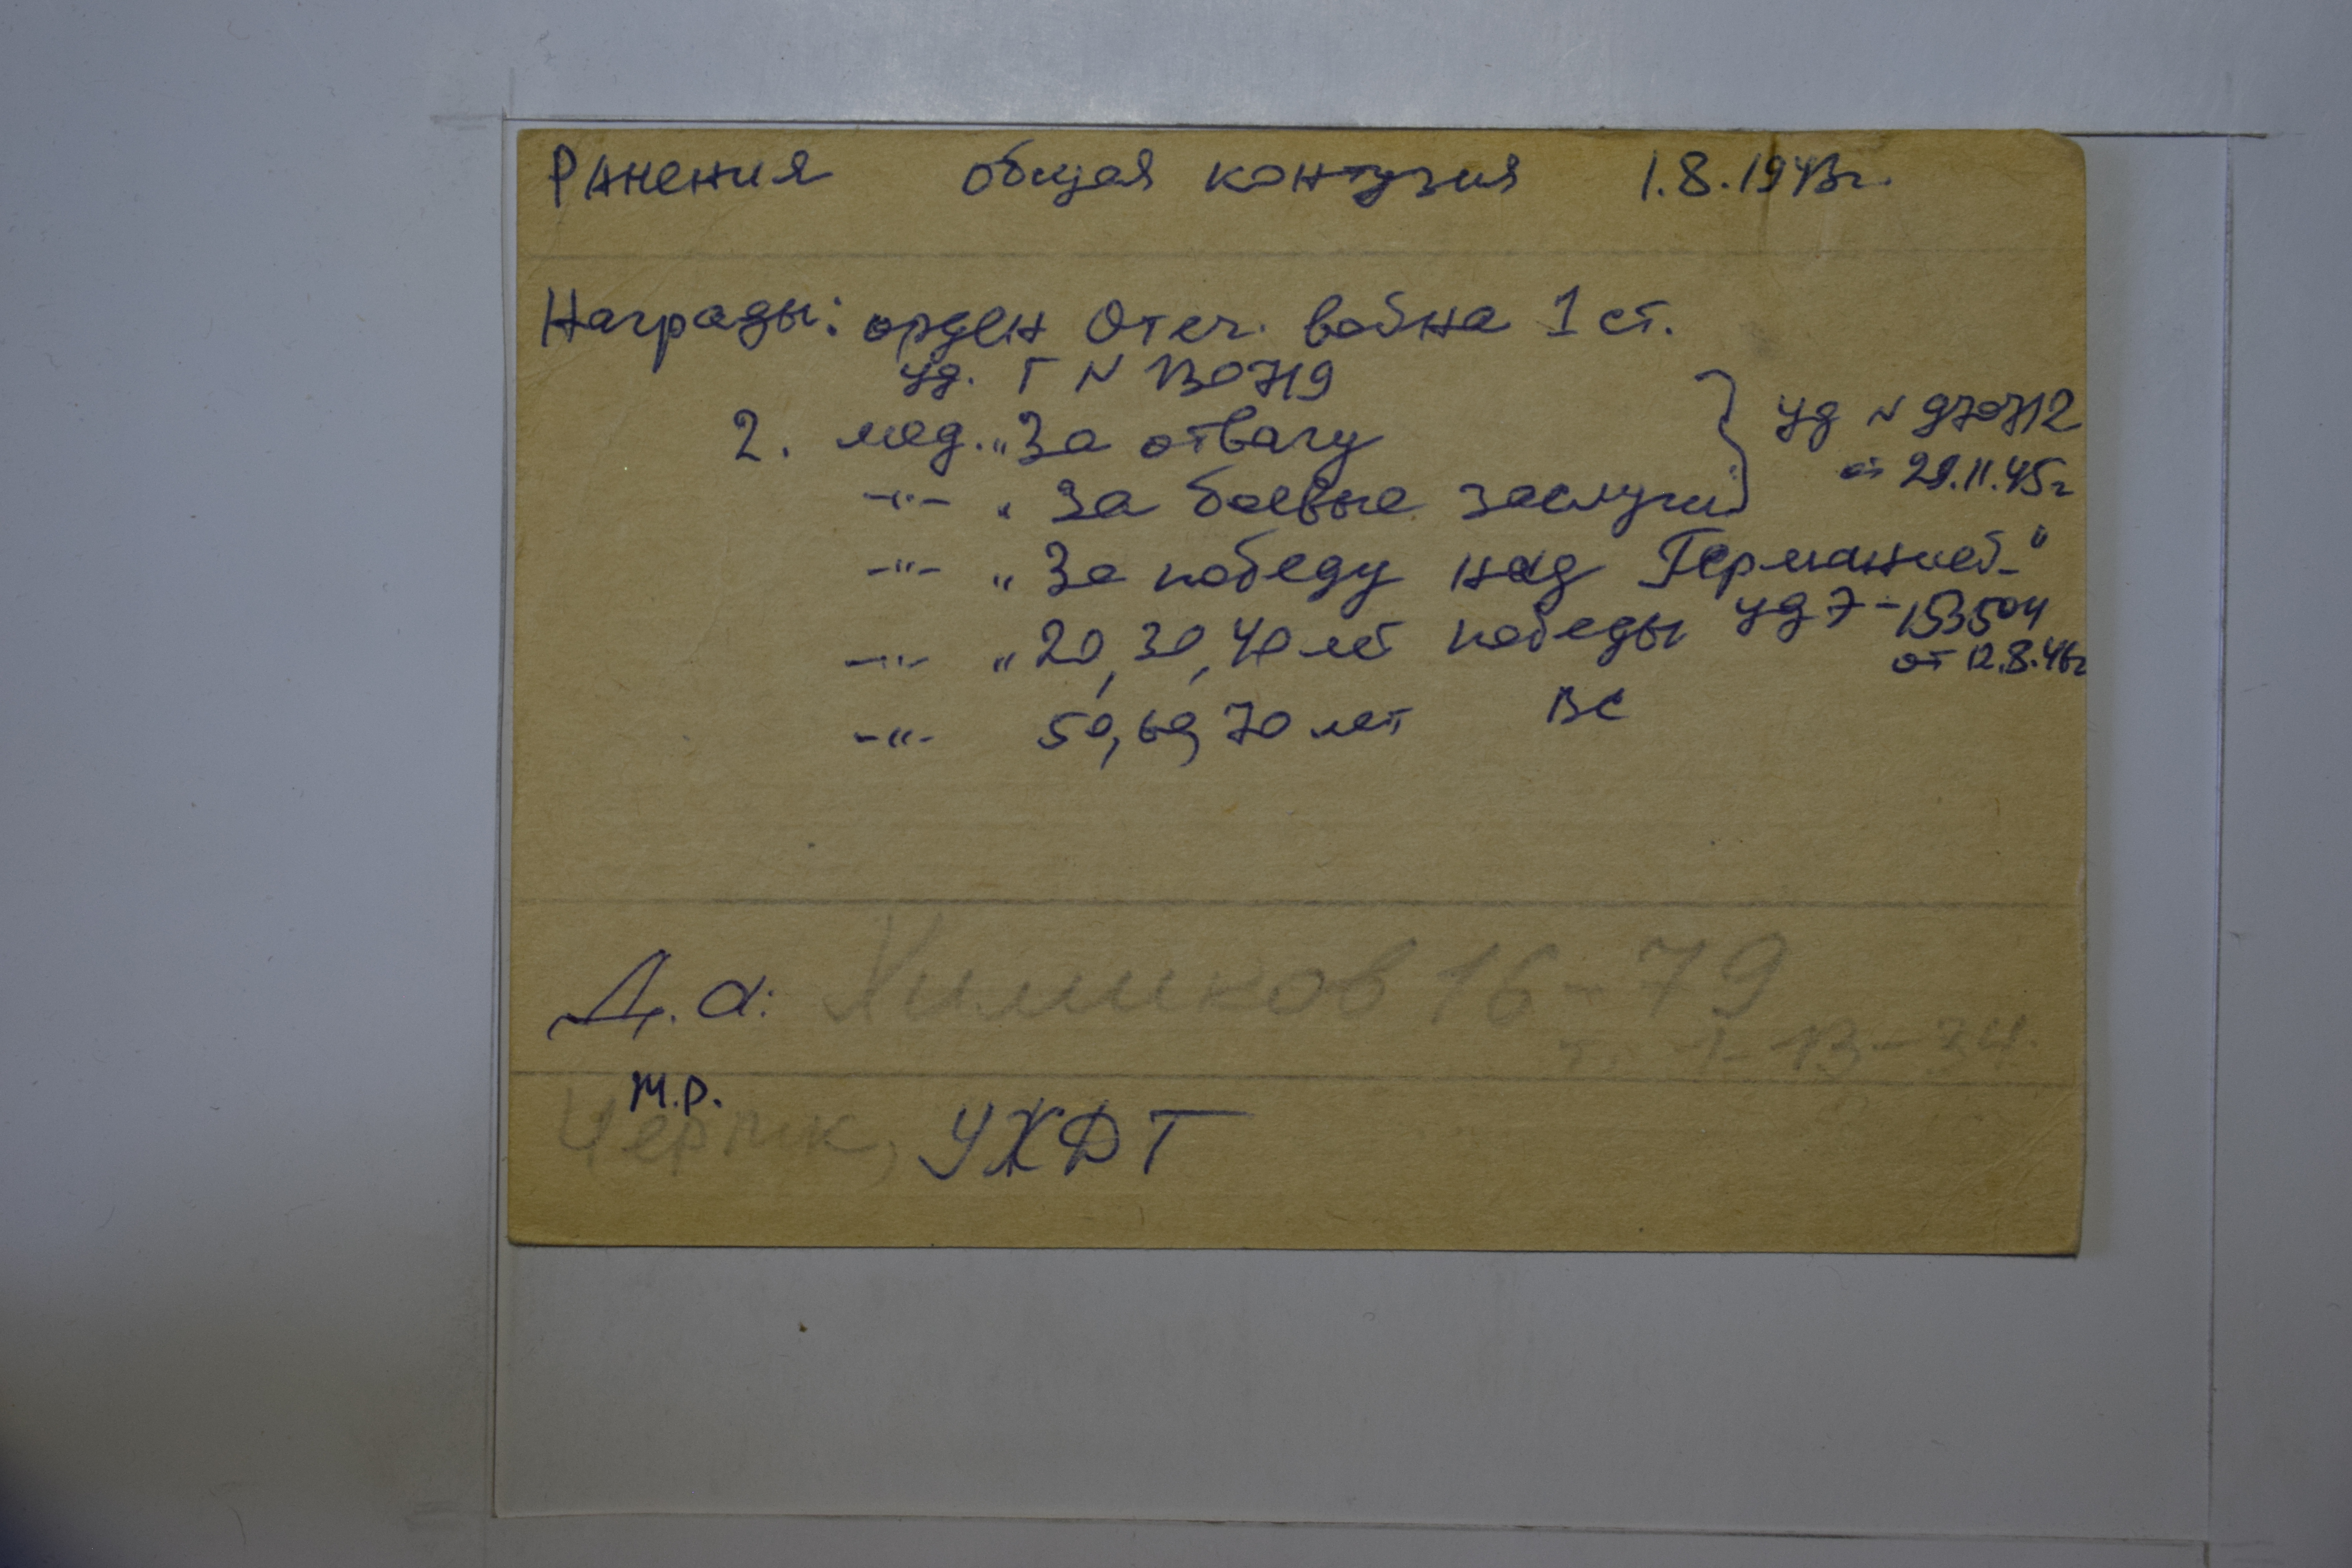 Ранения общая контузия 1.8.1943г.
Награды: орден Отеч. война 1 ст.
уд. Г N 130719
2. мед. „За отвагу
уд N 970712
от 29.11.45г
-"- „За боевые заслуги
-"- „За победу над Германией"
уд Э - 153504
от 12.8.46г
-"- „20, 30, 40 лет победы
-"- 50, 60, 70 лет ВС
Д.а: Химиков 16-79
т. 1-13-34.
М.р.
Черпик, УЖДТ